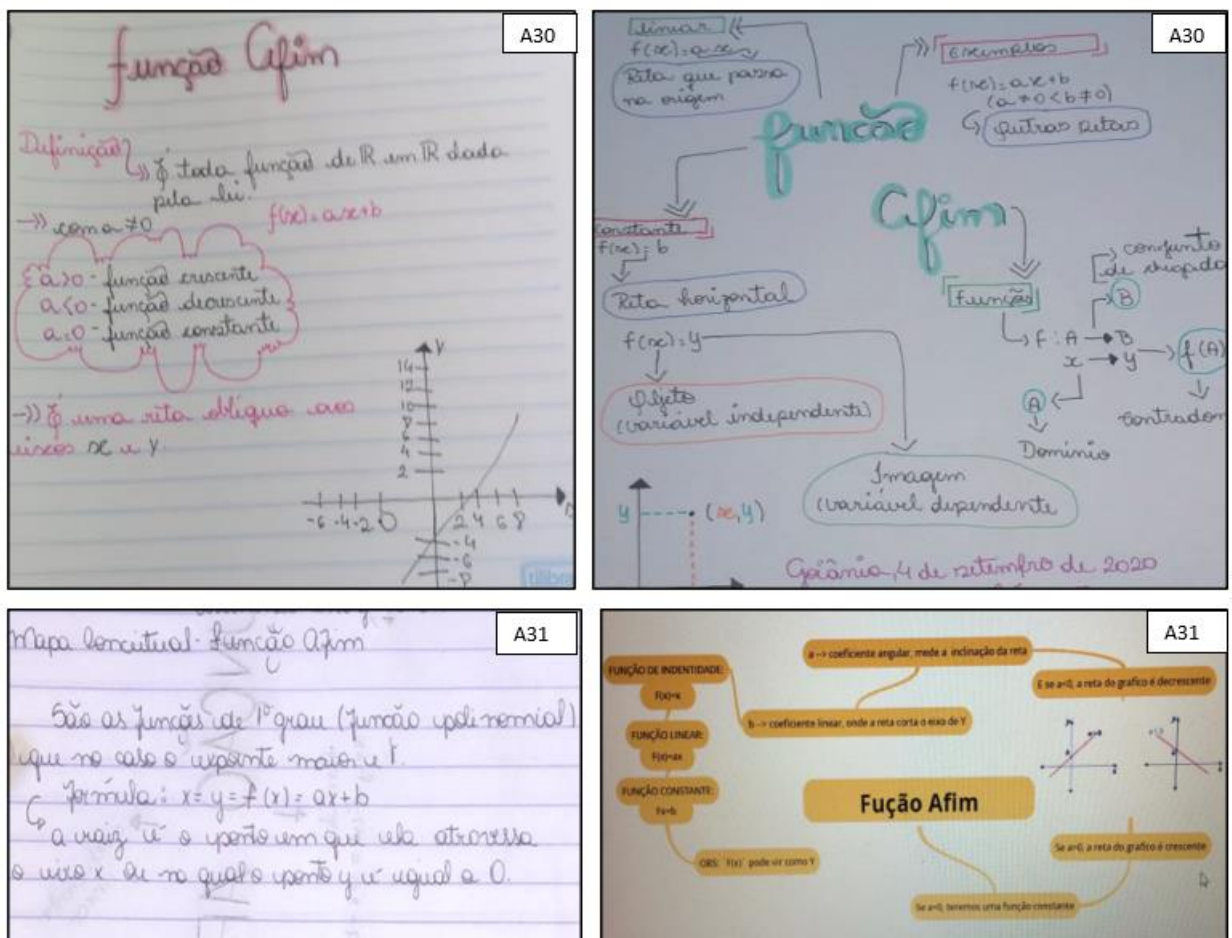 A30
função Afim
Definição
É toda função de R em R dada
pela lei.
f(x)=ax+b
com a≠0
a>0 - função crescente
a<0 - função decrescente
a=0 - função constante
É uma reta oblíqua aos
eixos x e y
y
14
12
10
8
6
4
2
-6 -4 -2 0 2 4 6 8
-4
-6
-8
tilibra
A30
linear
f(x)=ax
Reta que passa
na origem
Exemplos
f(x)=ax+b
(a≠0<b≠0)
Outras retas
função
Afim
constante
f(x)=b
Reta horizontal
f(x)=y
Objeto
(variável independente)
Imagem
(variável dependente
função
f: A → B
x → y
B
conjunto
de chegada
f(A)
contrador
A
Domínio
y
(x,y)
Goiânia, 4 de setembro de 2020
A31
Mapa Conceitual- função Afim
São as funções de 1º grau (função polinomial)
que no caso o expoente maior é 1.
fórmula: x= y= f(x)= ax+b
a raiz é o ponto em que ela atravessa
o eixo x ou no qual o ponto y é igual a 0.
A31
FUNÇÃO DE INDENTIDADE:
F(x)=x
FUNÇÃO LINEAR:
F(x)=ax
FUNÇÃO CONSTANTE:
Fx=b
OBS: ´F(x)´ pode vir como Y
a --> coeficiente angular, mede a inclinação da reta
b --> coeficiente linear, onde a reta corta o eixo de Y
E se a<0, a reta do grafico é decrescente
Fução Afim
Se a>0, a reta do grafico é crescente
Se a=0, teremos uma função constante